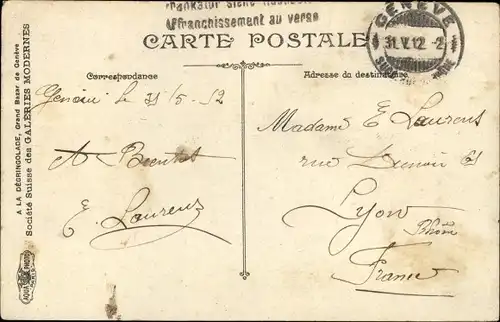 Frankatur siehe Rückseite
Affranchissement au verso
GENÈVE
31.V.12.-2
CARTE POSTALE
Correspondance
Adresse du destinataire
Genève le 31/5-12
A Bientôt
E. Laurens
Madame E Laurens
rue 61
Lyon
Rhône
France
A LA DÉGRINGOLADE, Grand Bazar de Genève
Société Suisse des GALERIES MODERNES
AQUA PHOTO